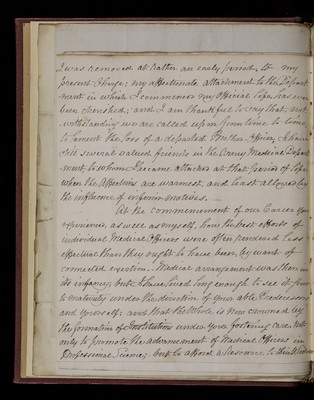 I was removed at rather an early period, to my
present Charge; my affectionate attachment to the Depart-
ment in which I commenced my Official life, has ever
been cherished; and I am thankful to say that, not
withstanding we are called upon from time to time
to lament the loss of a departed Brother Officer, I have
still several valued friends in the Army Medical Depart
ment, to whom I became attached at that period of life
when the Affections are warmest, and least alloyed by
the influence of inferior motives. —
At the commencement of our Career you
experienced, as well as myself, how the best efforts of
individual Medical Officers were often rendered less
effectual than they ought to have been, by want of
connected exertion. Medical arrangement was then in
its infancy, but I have lived long enough to see it grow
to maturity under the direction of your able Predecessors
and yourself: and that the Whole is now crowned by
the formation of Institutions under your fostering care, not
only to promote the advancement of Medical Officers in
Professional Science; but to afford a Resource to their